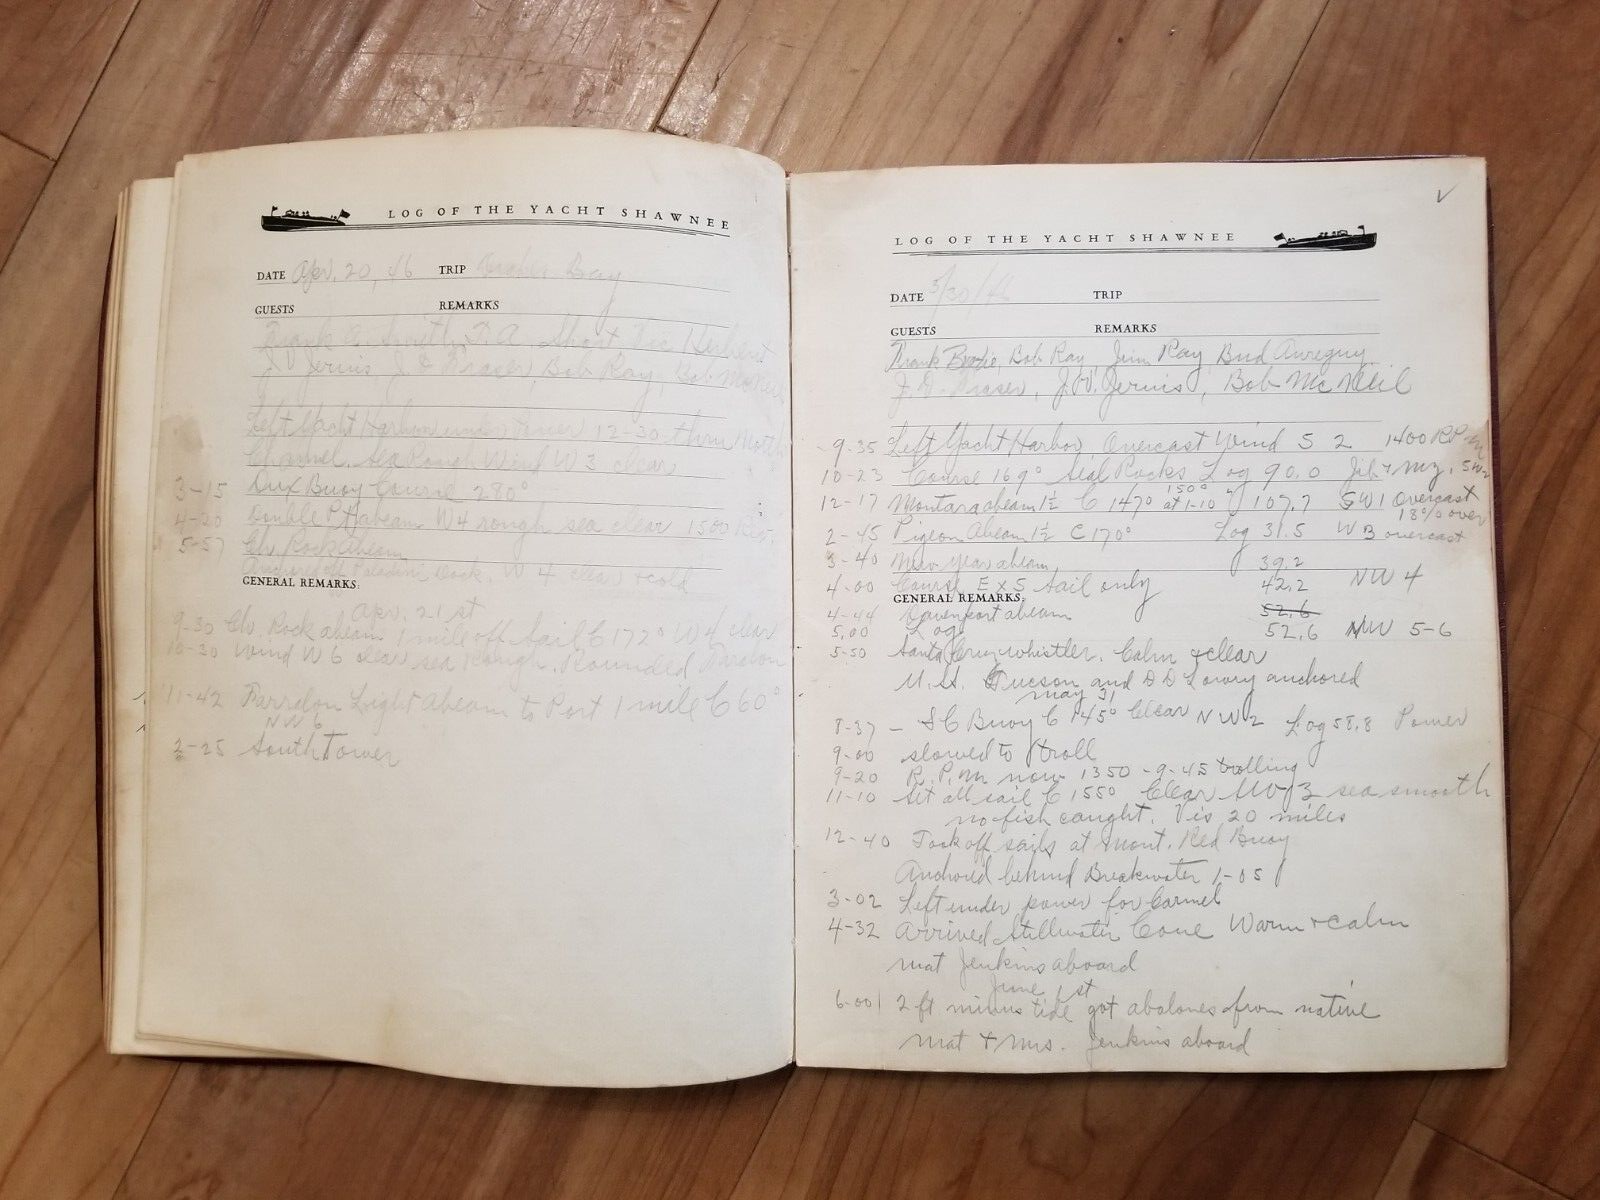 LOG OF THE YACHT SHAWNEE
DATE Apr. 20, 46 TRIP Bay
GUESTS REMARKS
Frank A. Smith, F. A. Short Vic
J. V. Jervis, J. D. Fraser, Bob Ray, Bob McNeil
Left Yacht Harbor 12-30 thru North
Channel. Sea Rough Wind W 3 clear
3-15 Dux Buoy Course 280°
4-20 Double Pt Abeam W 4 rough sea clear 1500
5-57 Ch. Rock Abeam
Anchored W 4 clear + cold
GENERAL REMARKS:
Apr. 21 st
9-30 Ch Rock abeam 1 mile off Sail C 172° W 4 clear
10-30 Wind W 6 clear sea Rough. Rounded
11-42 Farralon Light Abeam to Port 1 mile C 60°
NW 6
-25 South Tower
LOG OF THE YACHT SHAWNEE
DATE TRIP
GUESTS REMARKS
Frank Bob Ray Jim Ray Bud
J. D. Fraser, J. V. Jervis, Bob McNeil
9-35 Left Yacht Harbor, Overcast Wind S 2 1400 RPM
10-23 Course 169° Seal Rocks Log 90.0 Jib + Mz. SW 2
12-17 Montara abeam 1½ C 147° 150° at 1-10 107.7 SW 1 Overcast
18% over
2-45 Pigeon Abeam 1½ C 170° Log 31.5 W 3 overcast
3-40 New Year abeam 39.2
4-00 Course E x S sail only 42.2 NW 4
GENERAL REMARKS:
4-44 Davenport abeam 52.6
5.00 Log 52.6 NW 5-6
5-50 Santa Cruz whistler. Calm + clear
U.S.S. Tucson and DD Lowry anchored
May 31
8-37 - SC Buoy C 145° Clear NW 2 Log 58.8 Power
9-00 slowed to troll
9-20 R.P.M. now 1350 - 9-45 trolling
11-10 Set all sail C 155° Clear NW 3 sea smooth
no fish caught. Vis 20 miles
12-40 Took off sails at Mont. Red Buoy
Anchored behind Breakwater 1-05
3-02 Left under power for Carmel
4-32 Arrived Stillwater Cove Warm + calm
Mat Jenkins aboard
June 1st
6-00 2 ft minus tide got abalones from native
Mat + Mrs. Jenkins aboard